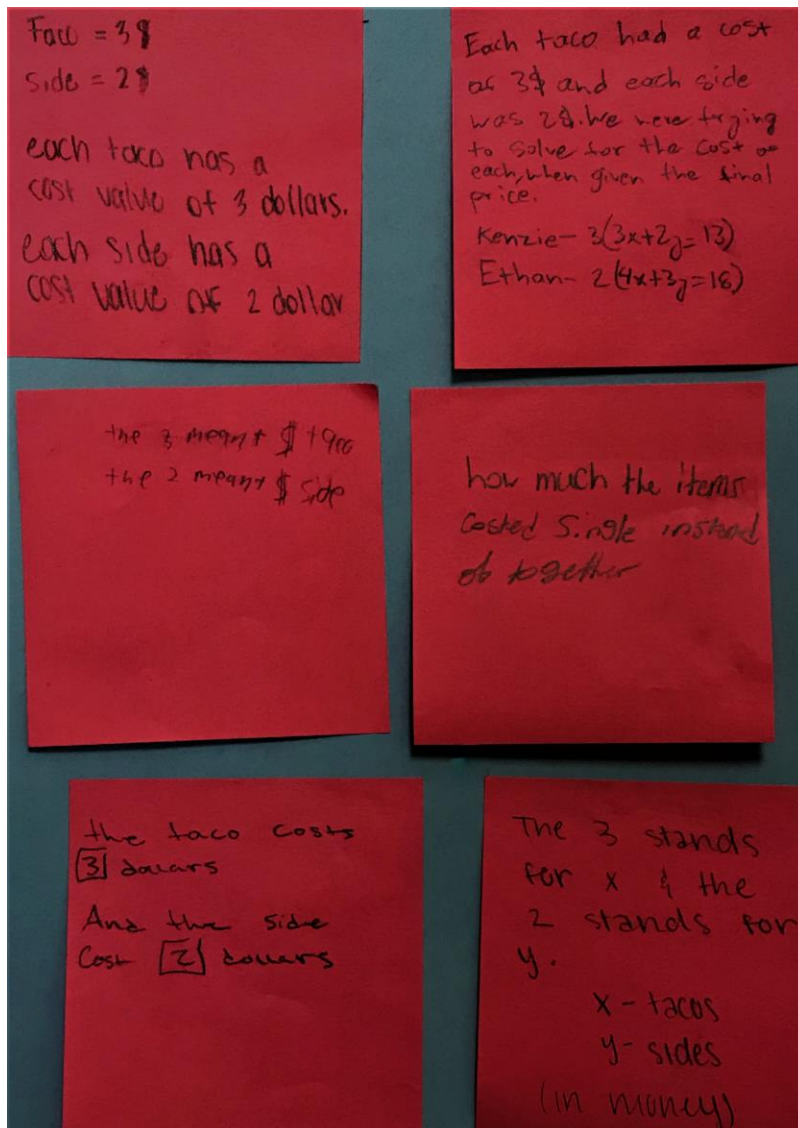 Taco = 3$
Side = 2$
each taco has a
cost value of 3 dollars.
each side has a
cost value of 2 dollar
Each taco had a cost
of 3$ and each side
was 2$. We were trying
to solve for the cost of
each, when given the final
price.
Kenzie- 3(3x+2y=13)
Ethan- 2(4x+3y=18)
the 3 meant $ taco
the 2 meant $ side
how much the items
costed single instead
of together
the taco costs
3 dollars
And the side
Cost 2 dollars
The 3 stands
for x & the
2 stands for
y.
x - tacos
y - sides
(in money)